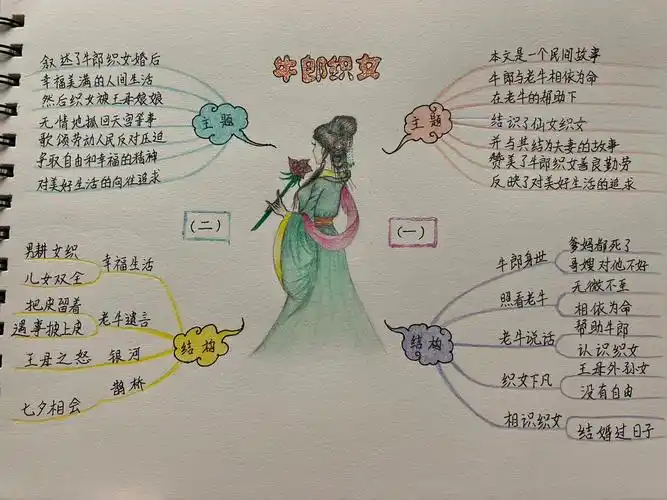 牛郎织女
本文是一个民间故事
牛郎与老牛相依为命
在老牛的帮助下
结识了仙女织女
并与其结为夫妻的故事
赞美了牛郎织女善良勤劳
反映了对美好生活的追求
主题
(一)
结构
牛郎身世
爹妈都死了
哥嫂对他不好
照看老牛
无微不至
相依为命
老牛说话
帮助牛郎
认识织女
织女下凡
王母外孙女
没有自由
相识织女
结婚过日子
叙述了牛郎织女婚后
幸福美满的人间生活
然后织女被王母娘娘
无情地抓回天宫等事
歌颂劳动人民反对压迫
争取自由和幸福的精神
对美好生活的向往追求
主题
(二)
结构
幸福生活
男耕女织
儿女双全
老牛遗言
把皮留着
遇事披上皮
银河
王母之怒
鹊桥
七夕相会